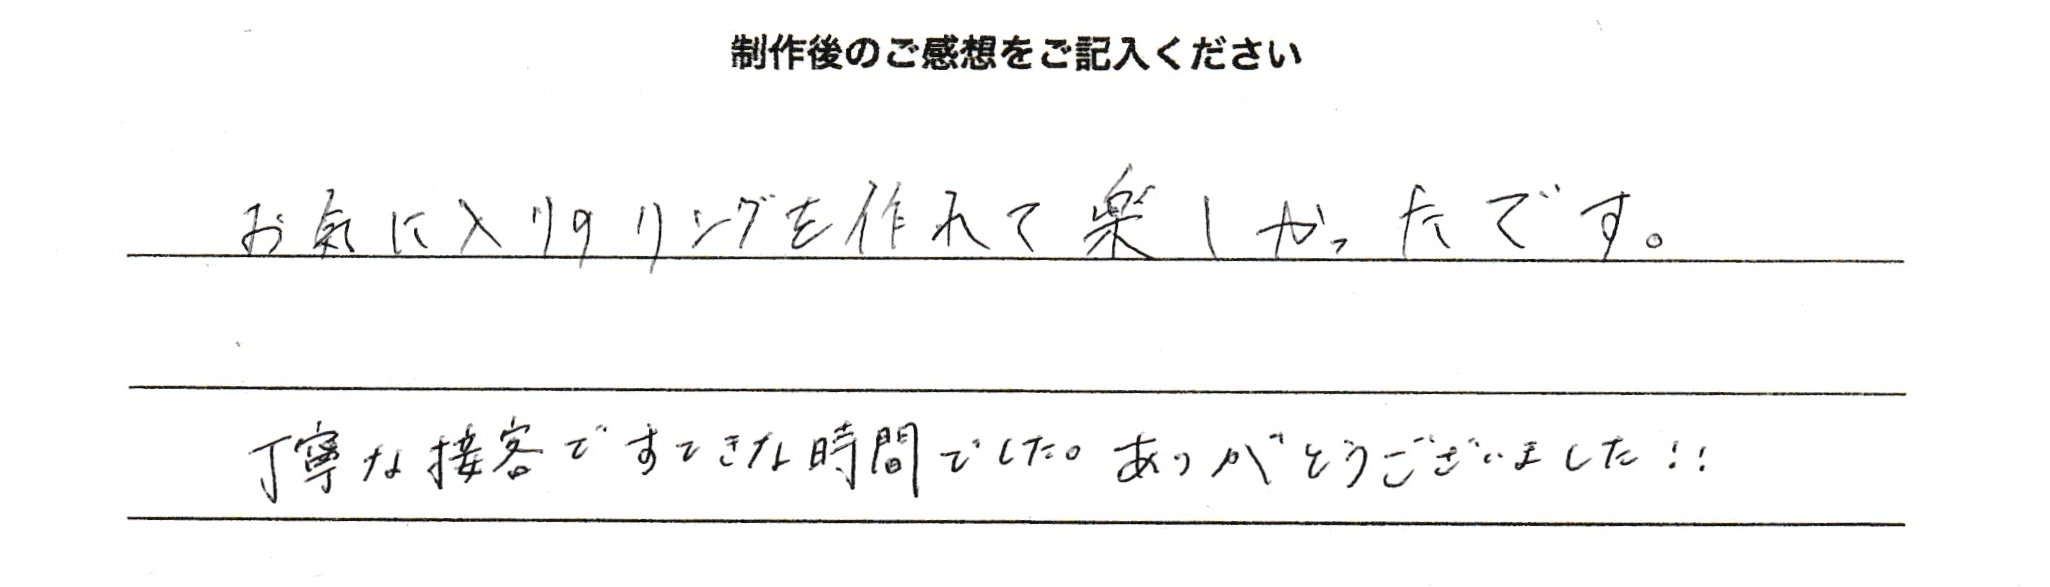 制作後のご感想をご記入ください
お気に入りのリングを作れて楽しかったです。
丁寧な接客ですてきな時間でした。ありがとうございました!!